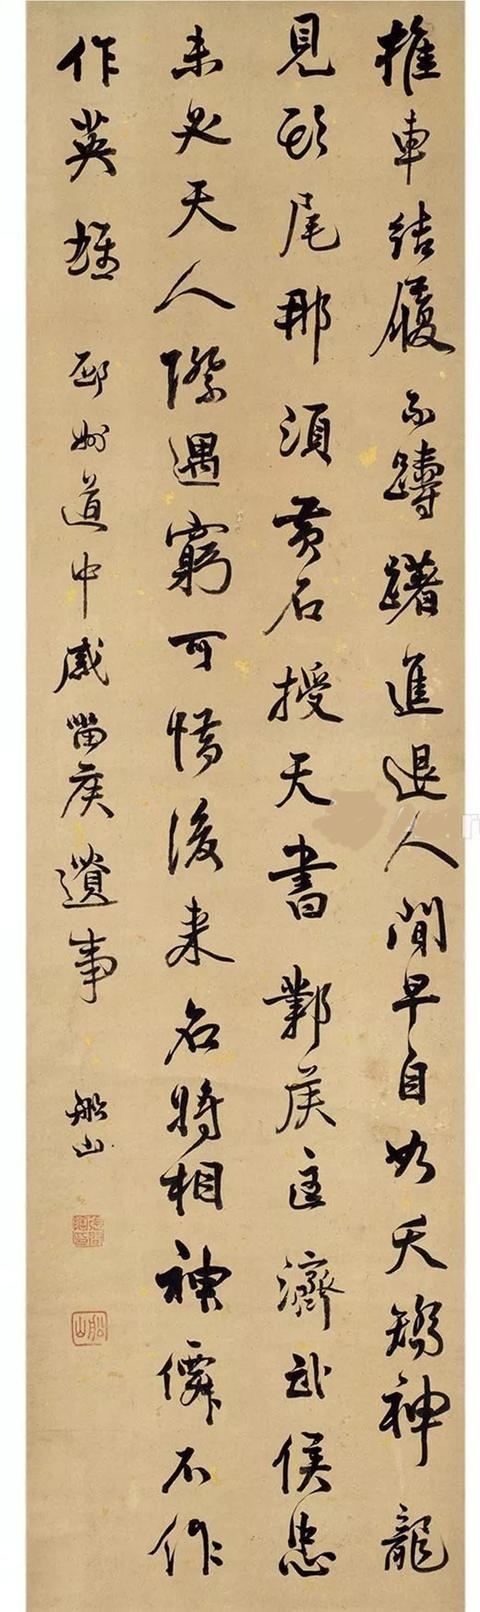 推車結履不躊躇進退人間早自如夭矯神龍
見頭尾那須黃石授天書酇侯匡濟武侯忠
未必天人際遇窮可惜後來名將相神僊不作
作英雄 邳州道中感留侯遺事 船山
船山